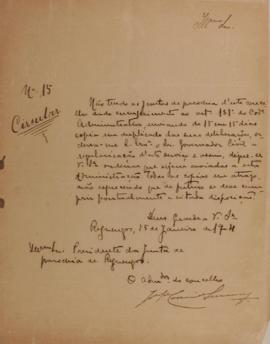 Illmo Sr.
Nº 15
Circular
Não tendo as Juntas de parochia d'este conce-
lho dado cumprimento ao art. 131º do Codº
Administrativo enviando de 15 em 15 dias
copia em duplicado das suas deliberações, or-
dena-me o Exmo Sr. Governador Civil a
regularisação d'este serviço e assim, digne-se
V. Sª ordenar que sejam enviadas a esta
Administração todas as copias em atrazo,
não esquecendo que de futuro se deve cum-
prir pontualmente a citada disposição.
Deus Guarde a V. Sª
Reguengos, 15 de Janeiro de
Illmo Sr. Presidente da Junta de
parochia de Reguengos.
O Admor do concelho